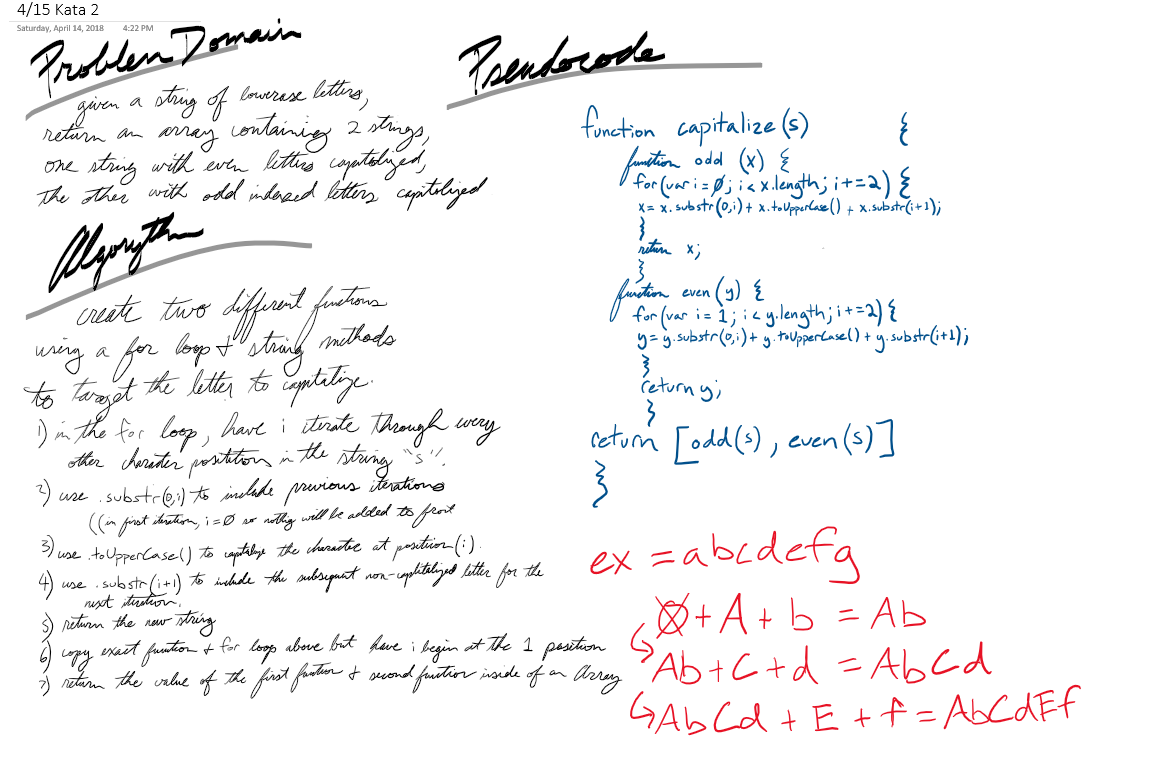 4/15 Kata 2
Saturday, April 14, 2018 4:22 PM
Problem Domain
given a string of lowercase letters,
return an array containing 2 strings,
one string with even letters capitalized,
the other with odd indexed letters capitalized
Algorythm
create two different functions
using a for loop + string methods
to target the letter to capitalize.
1) in the for loop, have i iterate through every
other character position in the string "s".
2) use .substr(0,i) to include previous iterations
((in first iteration, i=Ø so nothing will be added to front
3) use .toUpperCase() to capitalize the character at position (i).
4) use .substr(i+1) to include the subsequent non-capitalized letter for the
next iteration.
5) return the new string
6) copy exact function + for loop above but have i begin at the 1 position
7) return the value of the first function + second function inside of an Array
Pseudocode
function capitalize(s) {
function odd (x) {
for(var i = Ø; i < x.length; i+=2) {
x = x.substr(0,i) + x.toUpperCase() + x.substr(i+1);
}
return x;
}
function even(y) {
for(var i = 1; i < y.length; i+=2) {
y = y.substr(0,i) + y.toUpperCase() + y.substr(i+1);
}
return y;
}
return [odd(s), even(s)]
}
ex = abcdefg
Ø + A + b = Ab
Ab + C + d = AbCd
AbCd + E + f = AbCdEf